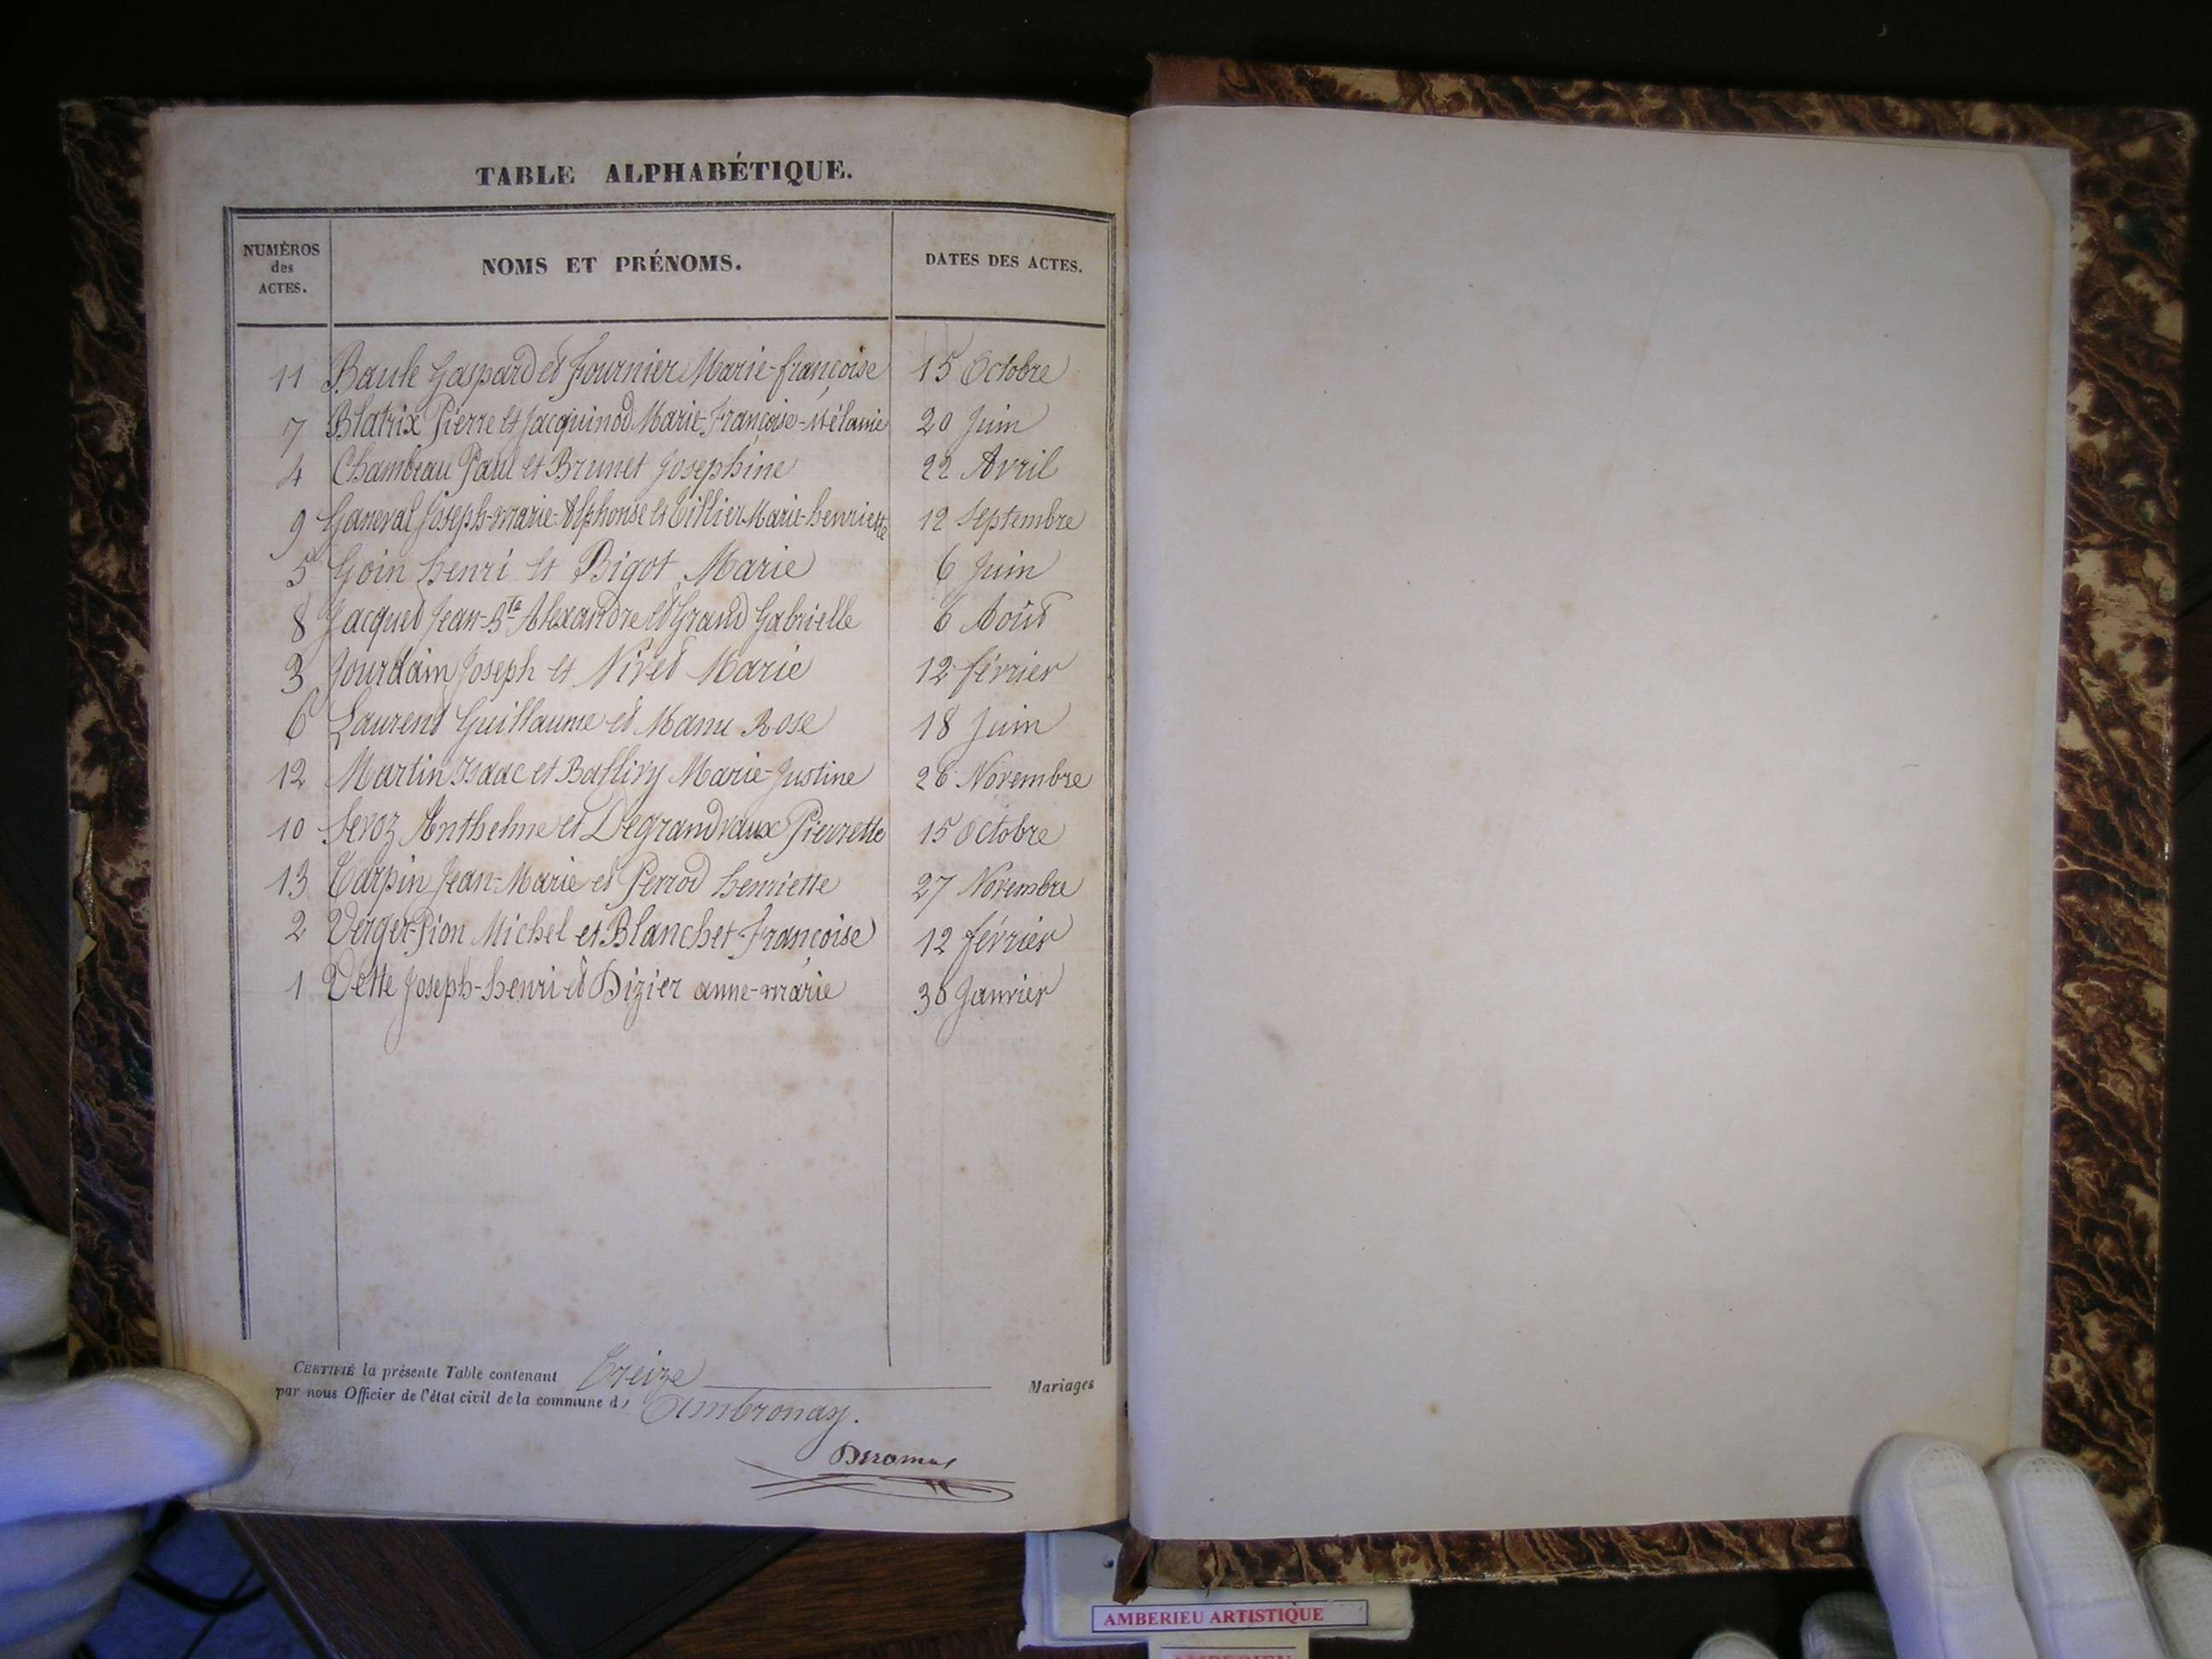 TABLE ALPHABÉTIQUE.
NUMÉROS des ACTES. NOMS ET PRÉNOMS. DATES DES ACTES.
11 Baule Gaspard et Fournier Marie-françoise 15 Octobre
7 Blatrix Pierre et Jacquinod Marie-Françoise-Mélanie 20 Juin
4 Chambeau Paul et Brunet Josephine 22 Avril
9 Ganeval Joseph-marie-Alphonse et Tillier Marie-henriette 12 Septembre
5 Goin henri et Bigot Marie 6 Juin
8 Jacquet Jean-Bte Alexandre et Grand Gabrielle 6 Août
3 Jourdain Joseph et Nivet Marie 12 février
6 Laurent Guillaume et Manu Rose 18 Juin
12 Martin Isaac et Ballivy Marie-Justine 26 Novembre
10 Servoz Anthelme et Degrandvaux Pierrette 15 Octobre
13 Tarpin Jean-Marie et Perrod henriette 27 Novembre
2 Verger-Pion Michel et Blanchet Françoise 12 février
1 Vette Joseph-henri et Dizier anne-marie 30 Janvier
CERTIFIÉ la présente Table contenant Treize Mariages
par nous Officier de l'état civil de la commune d' Ambronay.
AMBERIEU ARTISTIQUE
AMBERIEU